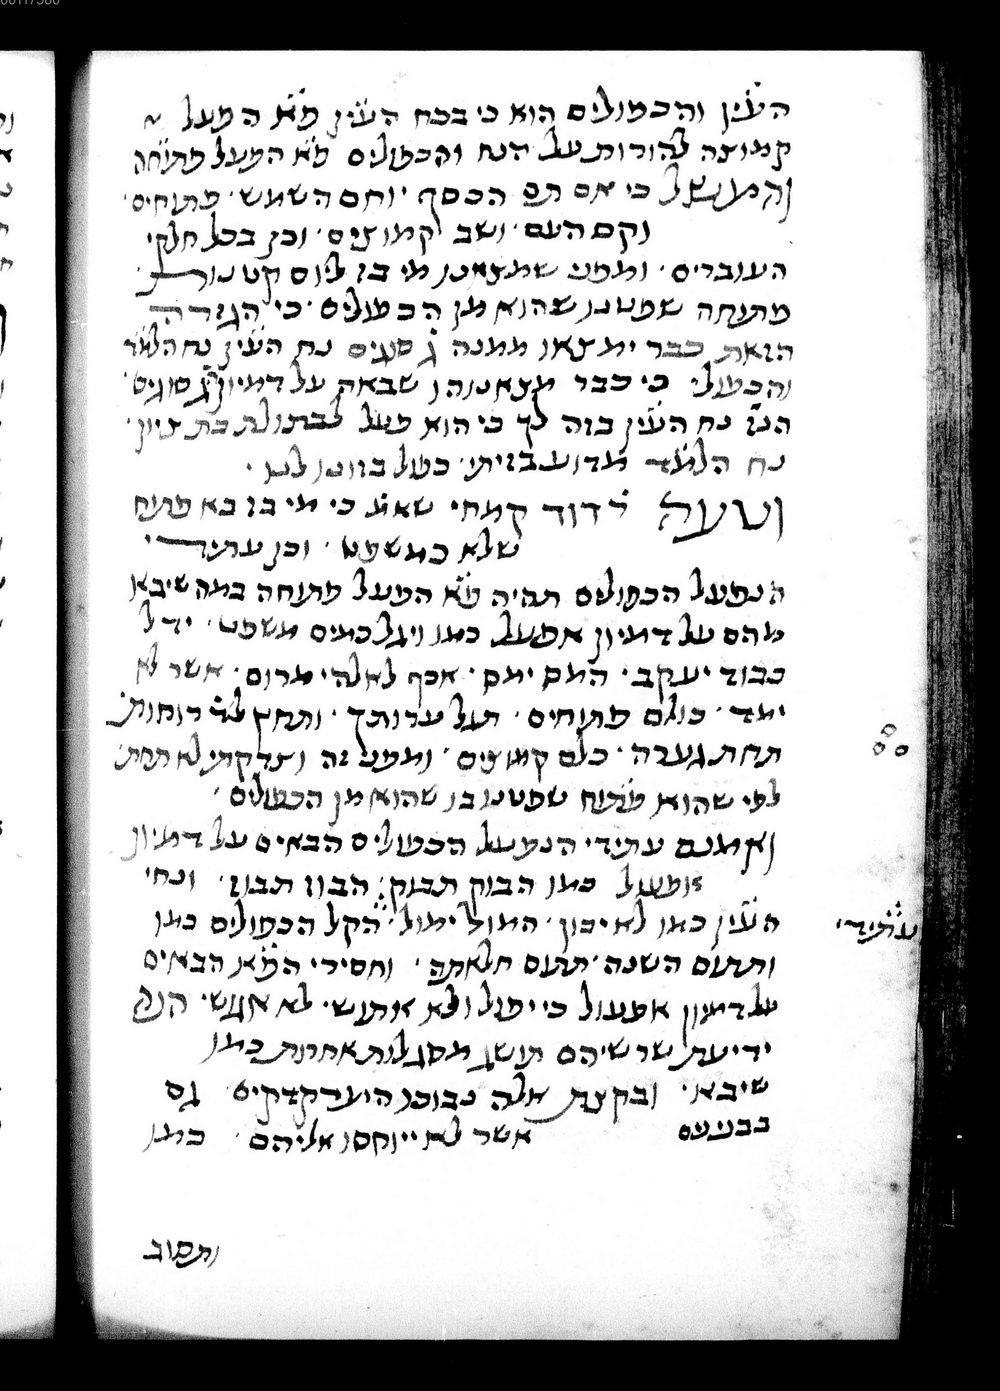 העין והכפולים הוא כי בכח העין פא הפעל
קמוצה להורות על הנח והכפולים פא הפעל פתוחה
והמשל כי אם תם הכסף וחם השמש פתוחים
וקם העם ושב קמוצים וכן בכל חלקי
העוברים וממנו שמצאנו מי בז ליום קטנות
פתוחה שפטנו שהוא מן הכפולים כי הגזרה
הזאת כבר ימצאו ממנה ג סוגים נח העין נח הלמד
והכפולי כי כבר מצאנוהו שבאה על דמיון ג סוגים
הנז נח העין בזה לך כי הוא פועל לבתולת בת ציון
נח הלמד מדוע בזיתי כפול בזונו לנו
וטעה ר דוד קמחי שאמ כי מי בז בא פתוח
שלא כמשפט וכן עתידי
הנפעל הכפולים תהיה פא הפעל פתוחה במה שיבאו
מהם על דמיון אפעל כמו ויגל כמים משפט ידל
כבוד יעקב המס ימס אכף לאלהי מרום אשר לא
ימד כולם פתוחים תגל ערותך ותחץ לד רוחות
תחת גערה כלם קמוצים וממנו זה וצדקתי לא תחת
לפי שהוא פתוח שפטנו בו שהוא מן הכפולים
ואמנם עתידי הנפעל הכפולים הבאים על דמיון
ופעול כמו הבוק תבוק הבוז תבוז ונחי
העין כמו לא יכון המול ימול הקל הכפולים כמו
עתידי
ותתום השנה תתום חלאתה וחסירי הפא הבאים
על דמיון אפעול כי יפול ולא אתוש לא אענש הנה
ידיעת שרשיהם תושג מסגלות אחרות כמו
שיבא ובקצת אלה נבוכו היעדקדקים גם
בבנינים אשר לא ייוחסו אליהם כמו
ותסוב